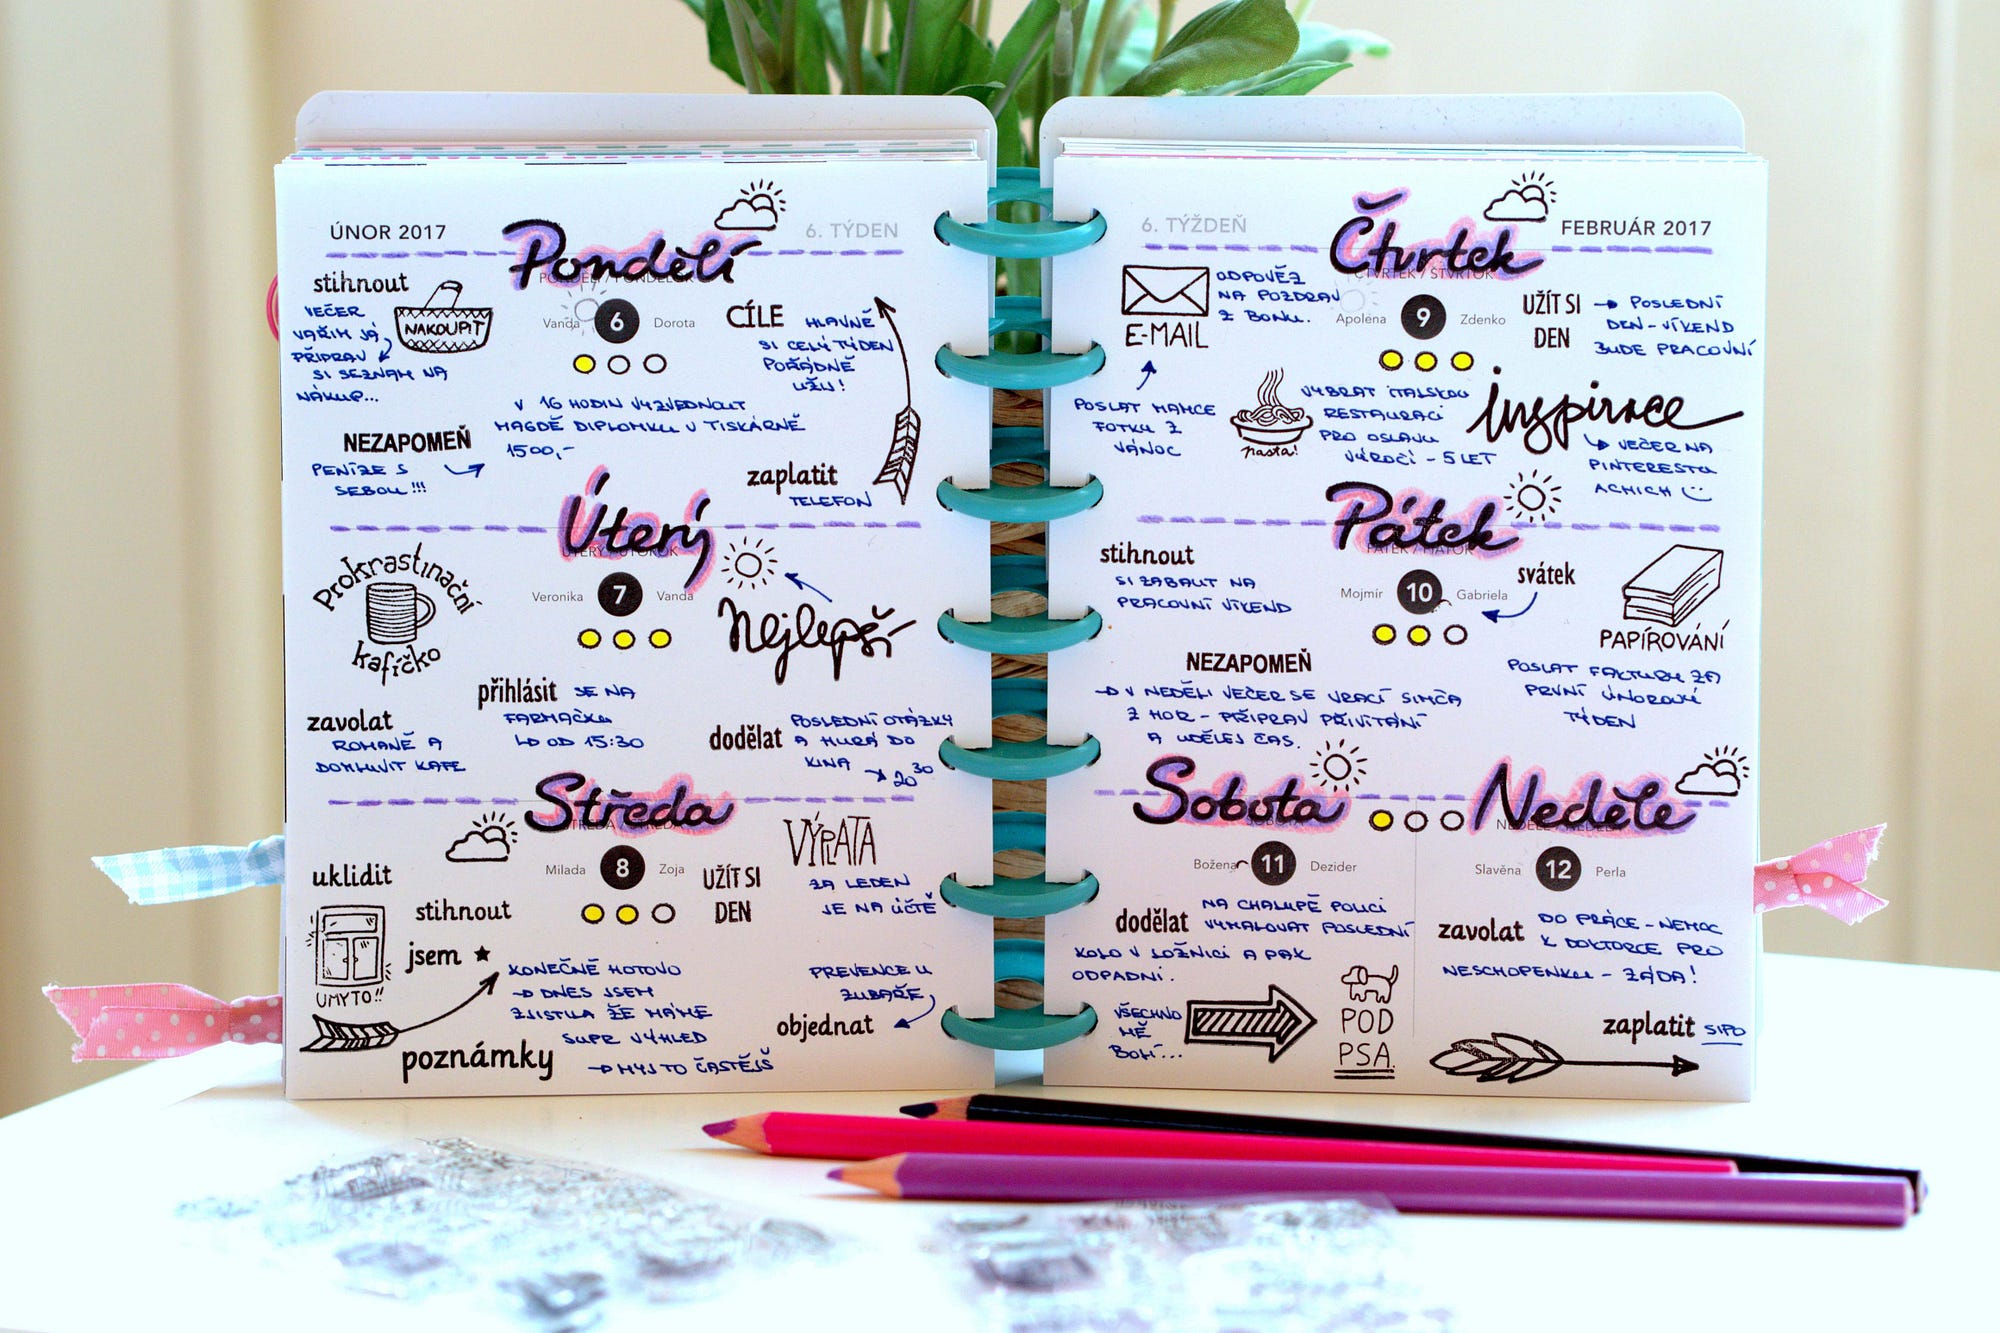 ÚNOR 2017
Pondělí
6. TÝDEN
PONDĚLÍ / PONDELOK
stihnout
VEČER
VAŘÍM JÁ
PŘIPRAV
SI SEZNAM NA
NÁKUP...
NAKOUPIT
Vanda 6 Dorota
CÍLE
HLAVNĚ
SI CELÝ TÝDEN
POŘÁDNĚ
UŽIJ!
V 16 HODIN VYZVEDNOUT
MAGDĚ DIPLOMKU V TISKÁRNĚ
1500,-
NEZAPOMEŇ
PENÍZE S
SEBOU!!!
zaplatit
TELEFON
Úterý
ÚTERÝ / UTOROK
Prokrastinační
kafíčko
Veronika 7 Vanda
Nejlepší
zavolat
ROMANĚ A
DOMLUVIT KAFE
přihlásit SE NA
FARMAČKU
OD 15:30
dodělat
POSLEDNÍ OTÁZKY
A HURÁ DO
KINA
20 30
Středa
STŘEDA / STREDA
Milada 8 Zoja
uklidit
UMYTO!!
stihnout
jsem
KONEČNĚ HOTOVO
DNES JSEM
ZJISTILA ŽE MÁME
SUPR VÝHLED
poznámky
MYJ TO ČASTĚJŠ
UŽÍT SI
DEN
VÝPLATA
ZA LEDEN
JE NA ÚČTĚ
PREVENCE U
ZUBAŘE
objednat
6. TÝŽDEŇ
Čtvrtek
FEBRUÁR 2017
ČTVRTEK / ŠTVRTOK
E-MAIL
ODPOVĚZ
NA POZDRAV
Z BONU.
POSLAT MAMCE
FOTKU Z
VÁNOC
Apolena 9 Zdenko
UŽÍT SI
DEN
POSLEDNÍ
DEN - VÍKEND
BUDE PRACOVNÍ
pasta!
VYBRAT ITALSKOU
RESTAURACI
PRO OSLAVU
VÝROČÍ - 5 LET
inspirace
VEČER NA
PINTERESTU
ACHICH
Pátek
PÁTEK / PIATOK
stihnout
SI ZABALIT NA
PRACOVNÍ VÍKEND
Mojmír 10 Gabriela
svátek
PAPÍROVÁNÍ
POSLAT FAKTURU ZA
PRVNÍ ÚNOROVÝ
TÝDEN
NEZAPOMEŇ
V NEDĚLI VEČER SE VRACÍ SIMČA
Z HOR - PŘIPRAV PŘIVÍTÁNÍ
A UDĚLEJ ČAS.
Sobota
SOBOTA
Božena 11 Dezider
dodělat
NA CHALUPĚ POLICI
VYMALOVAT POSLEDNÍ
KOLO V LOŽNICI A PAK
ODPADNI.
VŠECHNO
MĚ
BOLÍ...
POD
PSA.
Neděle
NEDĚLE / NEDEĽA
Slavěna 12 Perla
zavolat
DO PRÁCE - NEMOC
K DOKTORCE PRO
NESCHOPENKU - ZÁDA!
zaplatit SIPO